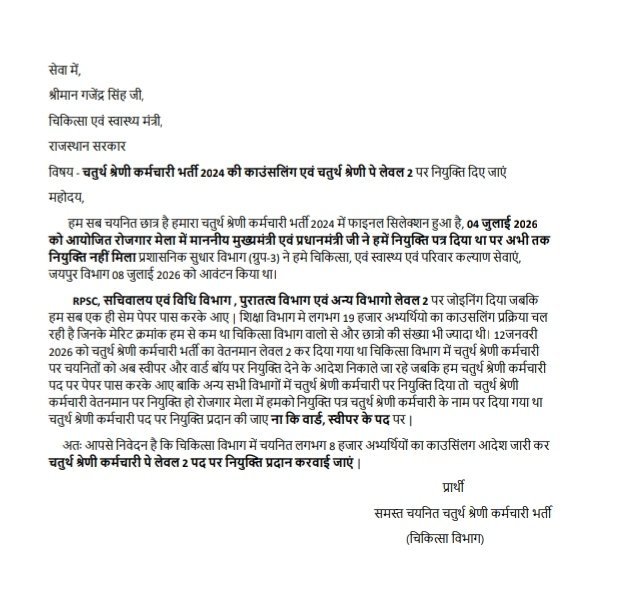 सेवा में,
श्रीमान गजेंद्र सिंह जी,
चिकित्सा एवं स्वास्थ्य मंत्री,
राजस्थान सरकार
विषय - चतुर्थ श्रेणी कर्मचारी भर्ती 2024 की काउंसलिंग एवं चतुर्थ श्रेणी पे लेवल 2 पर नियुक्ति दिए जाएं
महोदय,
हम सब चयनित छात्र है हमारा चतुर्थ श्रेणी कर्मचारी भर्ती 2024 में फाइनल सिलेक्शन हुआ है, 04 जुलाई 2026
को आयोजित रोजगार मेला में माननीय मुख्यमंत्री एवं प्रधानमंत्री जी ने हमें नियुक्ति पत्र दिया था पर अभी तक
नियुक्ति नहीं मिला प्रशासनिक सुधार विभाग (ग्रुप-3) ने हमे चिकित्सा, एवं स्वास्थ्य एवं परिवार कल्याण सेवाएं,
जयपुर विभाग 08 जुलाई 2026 को आवंटन किया था।
RPSC, सचिवालय एवं विधि विभाग , पुरातत्व विभाग एवं अन्य विभागो लेवल 2 पर जोइनिंग दिया जबकि
हम सब एक ही सेम पेपर पास करके आए | शिक्षा विभाग मे लगभग 19 हजार अभ्यर्थियो का काउसलिंग प्रक्रिया चल
रही है जिनके मेरिट क्रमांक हम से कम था चिकित्सा विभाग वालो से और छात्रो की संख्या भी ज्यादा थी। 12जनवरी
2026 को चतुर्थ श्रेणी कर्मचारी भर्ती का वेतनमान लेवल 2 कर दिया गया था चिकित्सा विभाग में चतुर्थ श्रेणी कर्मचारी
पर चयनितों को अब स्वीपर और वार्ड बॉय पर नियुक्ति देने के आदेश निकाले जा रहे जबकि हम चतुर्थ श्रेणी कर्मचारी
पद पर पेपर पास करके आए बाकि अन्य सभी विभागों में चतुर्थ श्रेणी कर्मचारी पर नियुक्ति दिया तो चतुर्थ श्रेणी
कर्मचारी वेतनमान पर नियुक्ति हो रोजगार मेला में हमको नियुक्ति पत्र चतुर्थ श्रेणी कर्मचारी के नाम पर दिया गया था
चतुर्थ श्रेणी कर्मचारी पद पर नियुक्ति प्रदान की जाए ना कि वार्ड, स्वीपर के पद पर |
अतः आपसे निवेदन है कि चिकित्सा विभाग में चयनित लगभग 8 हजार अभ्यर्थियों का काउसिंलग आदेश जारी कर
चतुर्थ श्रेणी कर्मचारी पे लेवल 2 पद पर नियुक्ति प्रदान करवाई जाएं |
प्रार्थी
समस्त चयनित चतुर्थ श्रेणी कर्मचारी भर्ती
(चिकित्सा विभाग)